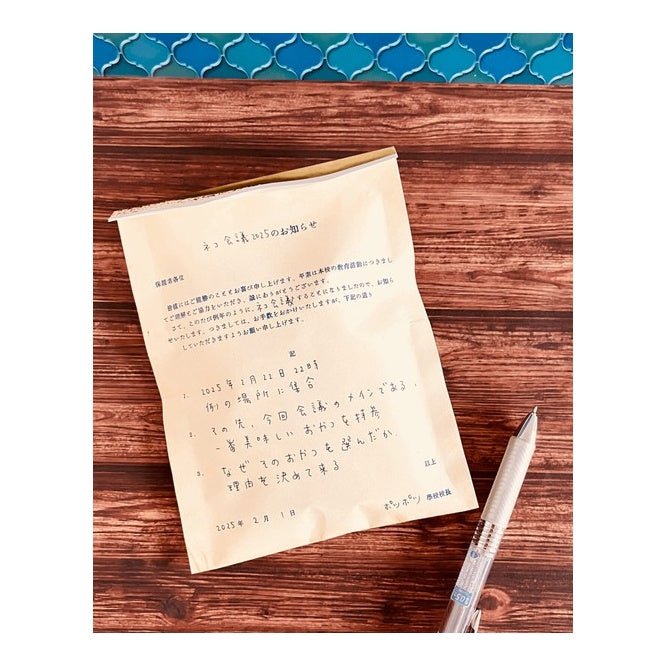 ネコ会議2025のお知らせ
保護者各位
皆様にはご健勝のこととお喜び申し上げます。平素は本校の教育活動につきまし
てご理解とご協力をいただき、誠にありがとうございます。
さて、このたび例年のように、ネコ会議することになりましたので、お知ら
せいたします。つきましては、お手数をおかけいたしますが、下記の通り
していただきますようお願い申し上げます。
記
1. 2025年2月22日22時
例の場所に集合
2. その後、今回会議のメインである、
一番美味しいおやつを持参
3. なぜそのおやつを選んだか、
理由を決めて来る
以上
2025年 2月 1日
ポツポツ 學校校長